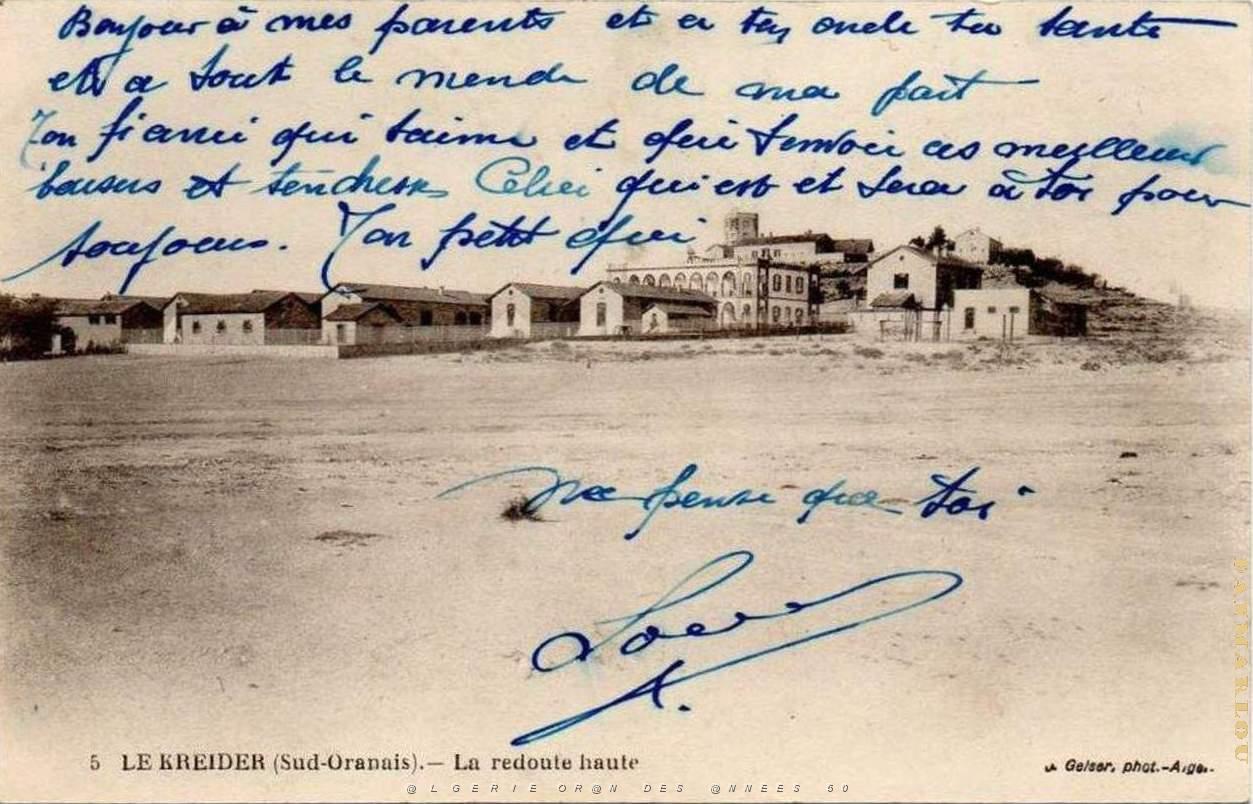 Bonjour à mes parents et a ton oncle ta tante
et a tout le monde de ma part
Ton fiancé qui t'aime et qui t'envoi ces meilleurs
baisers et tendresses Celui qui est et sera à toi pour
toujours. Ton petit qui
Ne pense qu'a toi
5 LE KREIDER (Sud-Oranais). — La redoute haute
J. Geiser, phot.-Alger.
@LGERIE OR@N DES @NNEES 50
PAPIARLOU